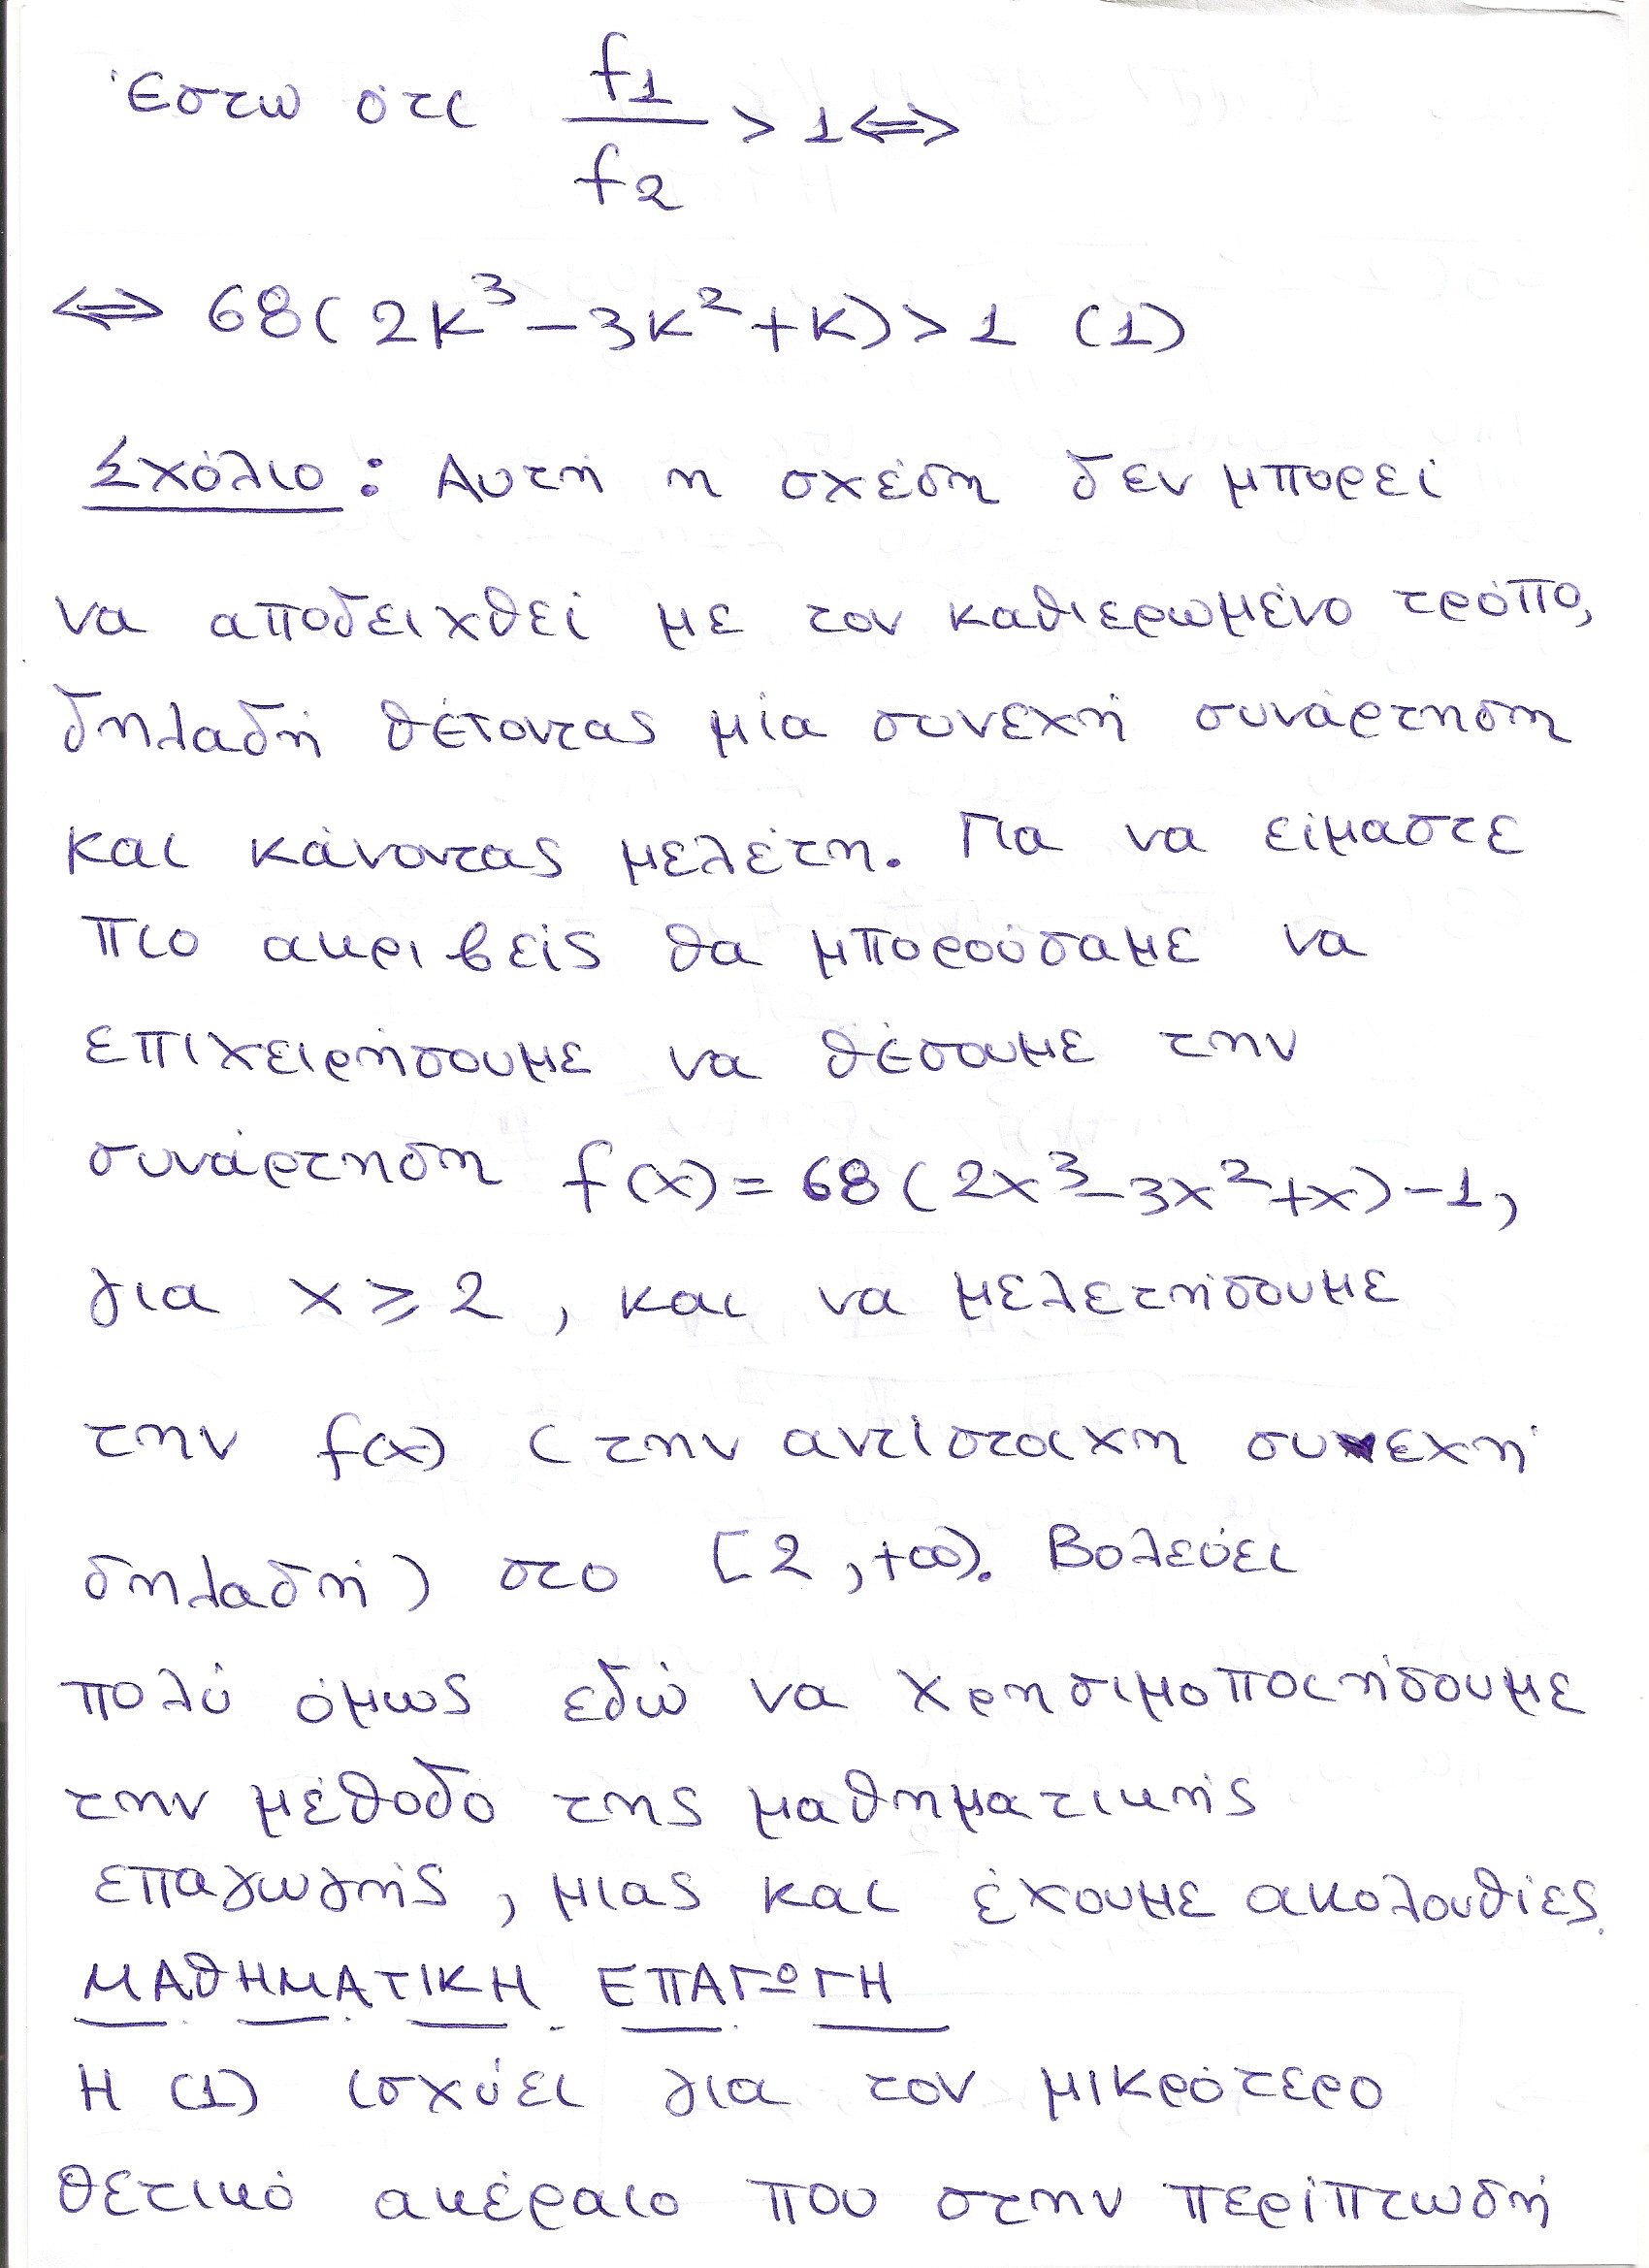 Έστω ότι f1/f2 > 1 ⇔
⇔ 68(2κ³ − 3κ² + κ) > 1 (1)
Σχόλιο: Αυτή η σχέση δεν μπορεί
να αποδειχθεί με τον καθιερωμένο τρόπο,
δηλαδή θέτοντας μία συνεχή συνάρτηση
και κάνοντας μελέτη. Για να είμαστε
πιο ακριβείς θα μπορούσαμε να
επιχειρήσουμε να θέσουμε την
συνάρτηση f(x) = 68(2x³ − 3x² + x) − 1,
για x ≥ 2, και να μελετήσουμε
την f(x) (την αντίστοιχη συνεχή
δηλαδή) στο [2, +∞). Βολεύει
πολύ όμως εδώ να χρησιμοποιήσουμε
την μέθοδο της μαθηματικής
επαγωγής, μιας και έχουμε ακολουθίες.
ΜΑΘΗΜΑΤΙΚΗ ΕΠΑΓΩΓΗ
Η (1) ισχύει για τον μικρότερο
θετικό ακέραιο που στην περίπτωσή